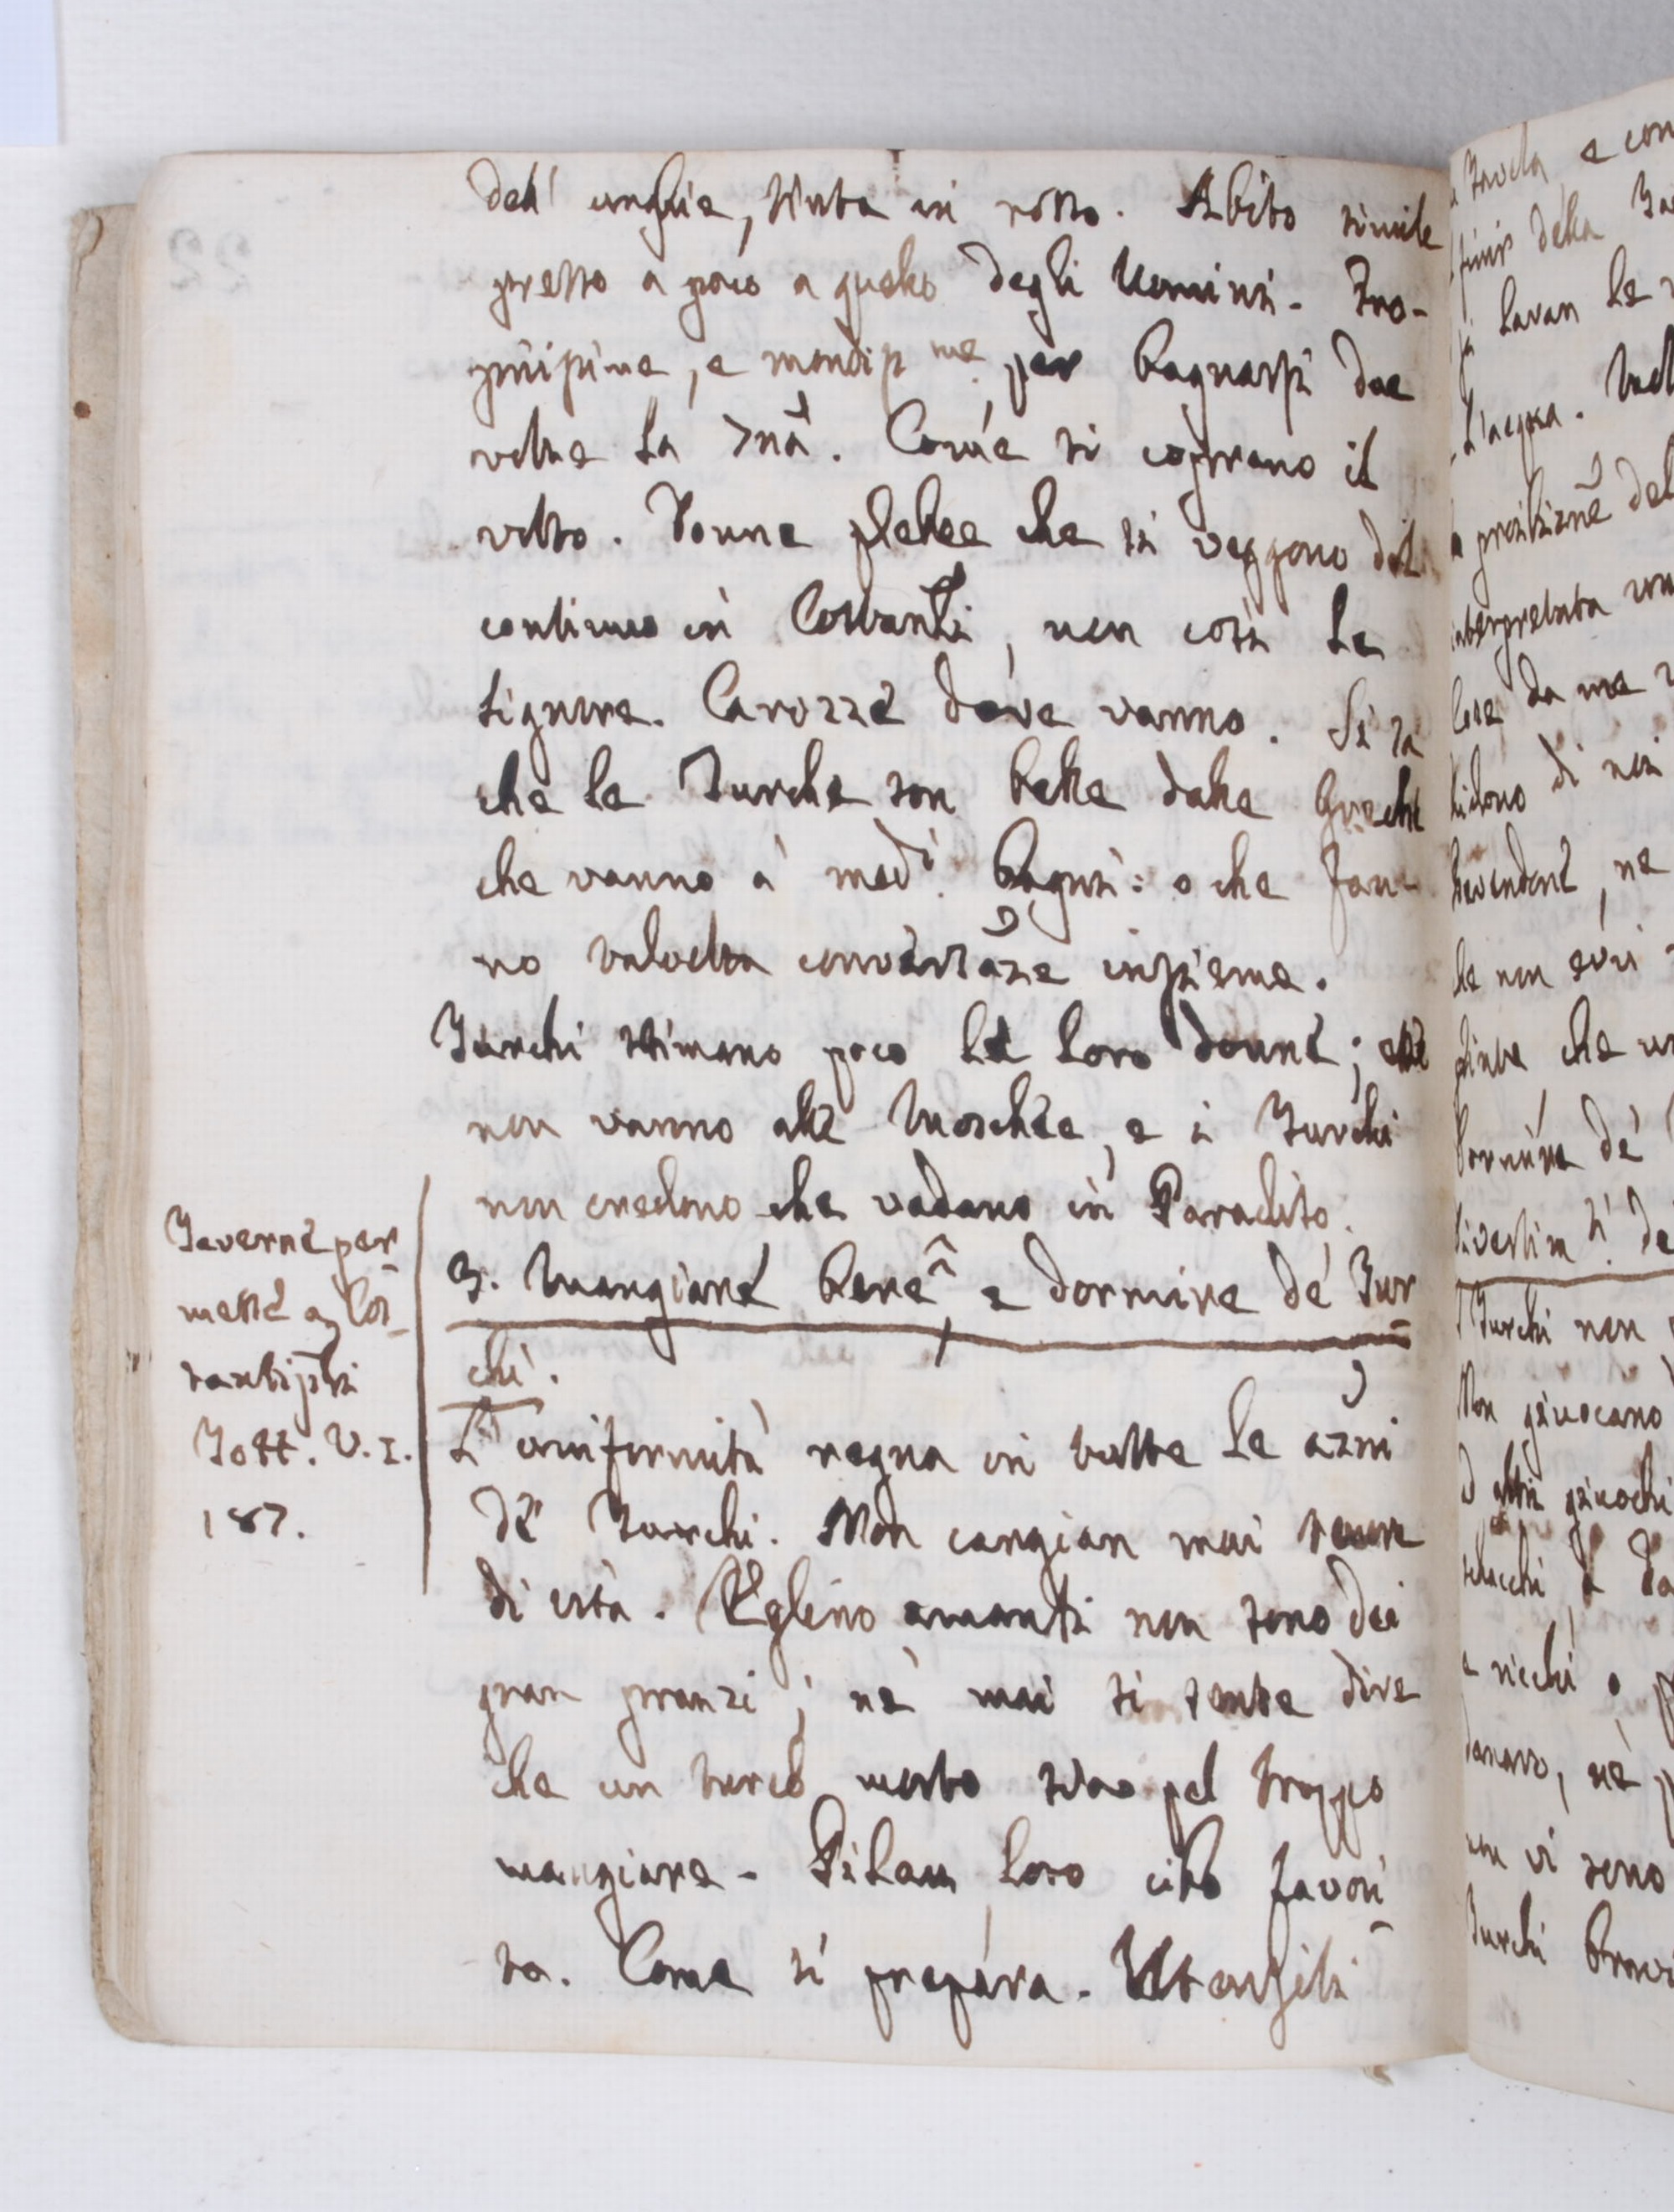 dell' unghie, tinta in rosso. Abito simile
presso a poco a quello degli Uomini. Pro-
priissime, e mondiss.me per bagnarsi due
volte la 7nã. Come si coprano il
volto. Donne plebee che si veggono del
continuo in Costantli, non così le
Signore. Carozze dove vanno. Si sà
che le Turche son belle dalle Greche
che vanno a' med.i Bagni: o che fan-
no talvolta conversaze insieme.
Turchi stimano poco le loro donne; esse
non vanno alle Moschèe, e i Turchi
non credono che vadano in Paradiso.
3. Mangiare, bere, e dormire de' Tur
chi.
L'uniformità regna in tutte le azni
de' Turchi. Non cangian mai tenore
di vita. Eglino amanti non sono dei
gran pranzi; nè mai si sente dire
che un turco morto siao pel troppo
mangiare. Pilau, loro cibo favori-
to. Come si prepara. Utensili
Taverne per
messe a Cos-
tantipli
Tott. V. I.
187.
Tavola, e con
finir della Ta
si lavan le
l'acqua.
proibizione del
interpretata
da me
di noi
bevendone, ne
che un
de'
Turchi non
Non giuocano
altri giuochi
scacchi
e ricchi
danaro, nè
non vi sono
Turchi